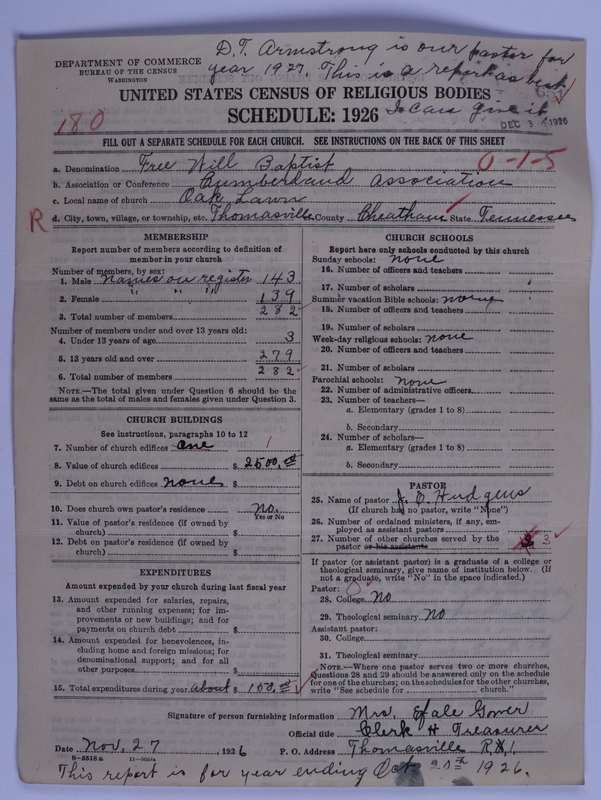 D.T. Armstrong is our pastor for
year 1927. This is a report as best
I can give it
DEPARTMENT OF COMMERCE
BUREAU OF THE CENSUS
WASHINGTON
UNITED STATES CENSUS OF RELIGIOUS BODIES
SCHEDULE: 1926
180
DEC 3 1926
FILL OUT A SEPARATE SCHEDULE FOR EACH CHURCH. SEE INSTRUCTIONS ON THE BACK OF THIS SHEET
a. Denomination Free Will Baptist 0-1-5
b. Association or Conference Cumberland Association
c. Local name of church Oak Lawn
R d. City, town, village, or township, etc. Thomasville County Cheatham State Tennessee
MEMBERSHIP
Report number of members according to definition of
member in your church
Number of members, by sex:
1. Male Names on register 143
2. Female " " " 139
3. Total number of members 282
Number of members under and over 13 years old:
4. Under 13 years of age 3
5. 13 years old and over 279
6. Total number of members 282
NOTE.—The total given under Question 6 should be the
same as the total of males and females given under Question 3.
CHURCH BUILDINGS
See instructions, paragraphs 10 to 12
7. Number of church edifices one 1
8. Value of church edifices $ 2500.00
9. Debt on church edifices none $
10. Does church own pastor's residence no.
Yes or No
11. Value of pastor's residence (if owned by
church) $
12. Debt on pastor's residence (if owned by
church) $
EXPENDITURES
Amount expended by your church during last fiscal year
13. Amount expended for salaries, repairs,
and other running expenses; for im-
provements or new buildings; and for
payments on church debt $
14. Amount expended for benevolences, in-
cluding home and foreign missions; for
denominational support; and for all
other purposes $
15. Total expenditures during year about $ 150.00
CHURCH SCHOOLS
Report here only schools conducted by this church
Sunday schools: none
16. Number of officers and teachers
17. Number of scholars
Summer vacation Bible schools: none
18. Number of officers and teachers
19. Number of scholars
Week-day religious schools: none
20. Number of officers and teachers
21. Number of scholars
Parochial schools: none
22. Number of administrative officers
23. Number of teachers—
a. Elementary (grades 1 to 8)
b. Secondary
24. Number of scholars—
a. Elementary (grades 1 to 8)
b. Secondary
PASTOR
25. Name of pastor J. O. Hudgens
(If church has no pastor, write "None")
26. Number of ordained ministers, if any, em-
ployed as assistant pastors
27. Number of other churches served by the
pastor or his assistants 3
If pastor (or assistant pastor) is a graduate of a college or
theological seminary, give name of institution below. (If
not a graduate, write "No" in the space indicated.)
Pastor:
28. College No
29. Theological seminary No
Assistant pastor:
30. College
31. Theological seminary
NOTE.—Where one pastor serves two or more churches,
Questions 28 and 29 should be answered only on the schedule
for one of the churches; on the schedules for the other churches,
write "See schedule for church."
Signature of person furnishing information Mrs. Gower
Official title Clerk & Treasurer
Date Nov. 27, 1926 P. O. Address Thomasville R.1.
8-5518 a
This report is for year ending Oct 1926.